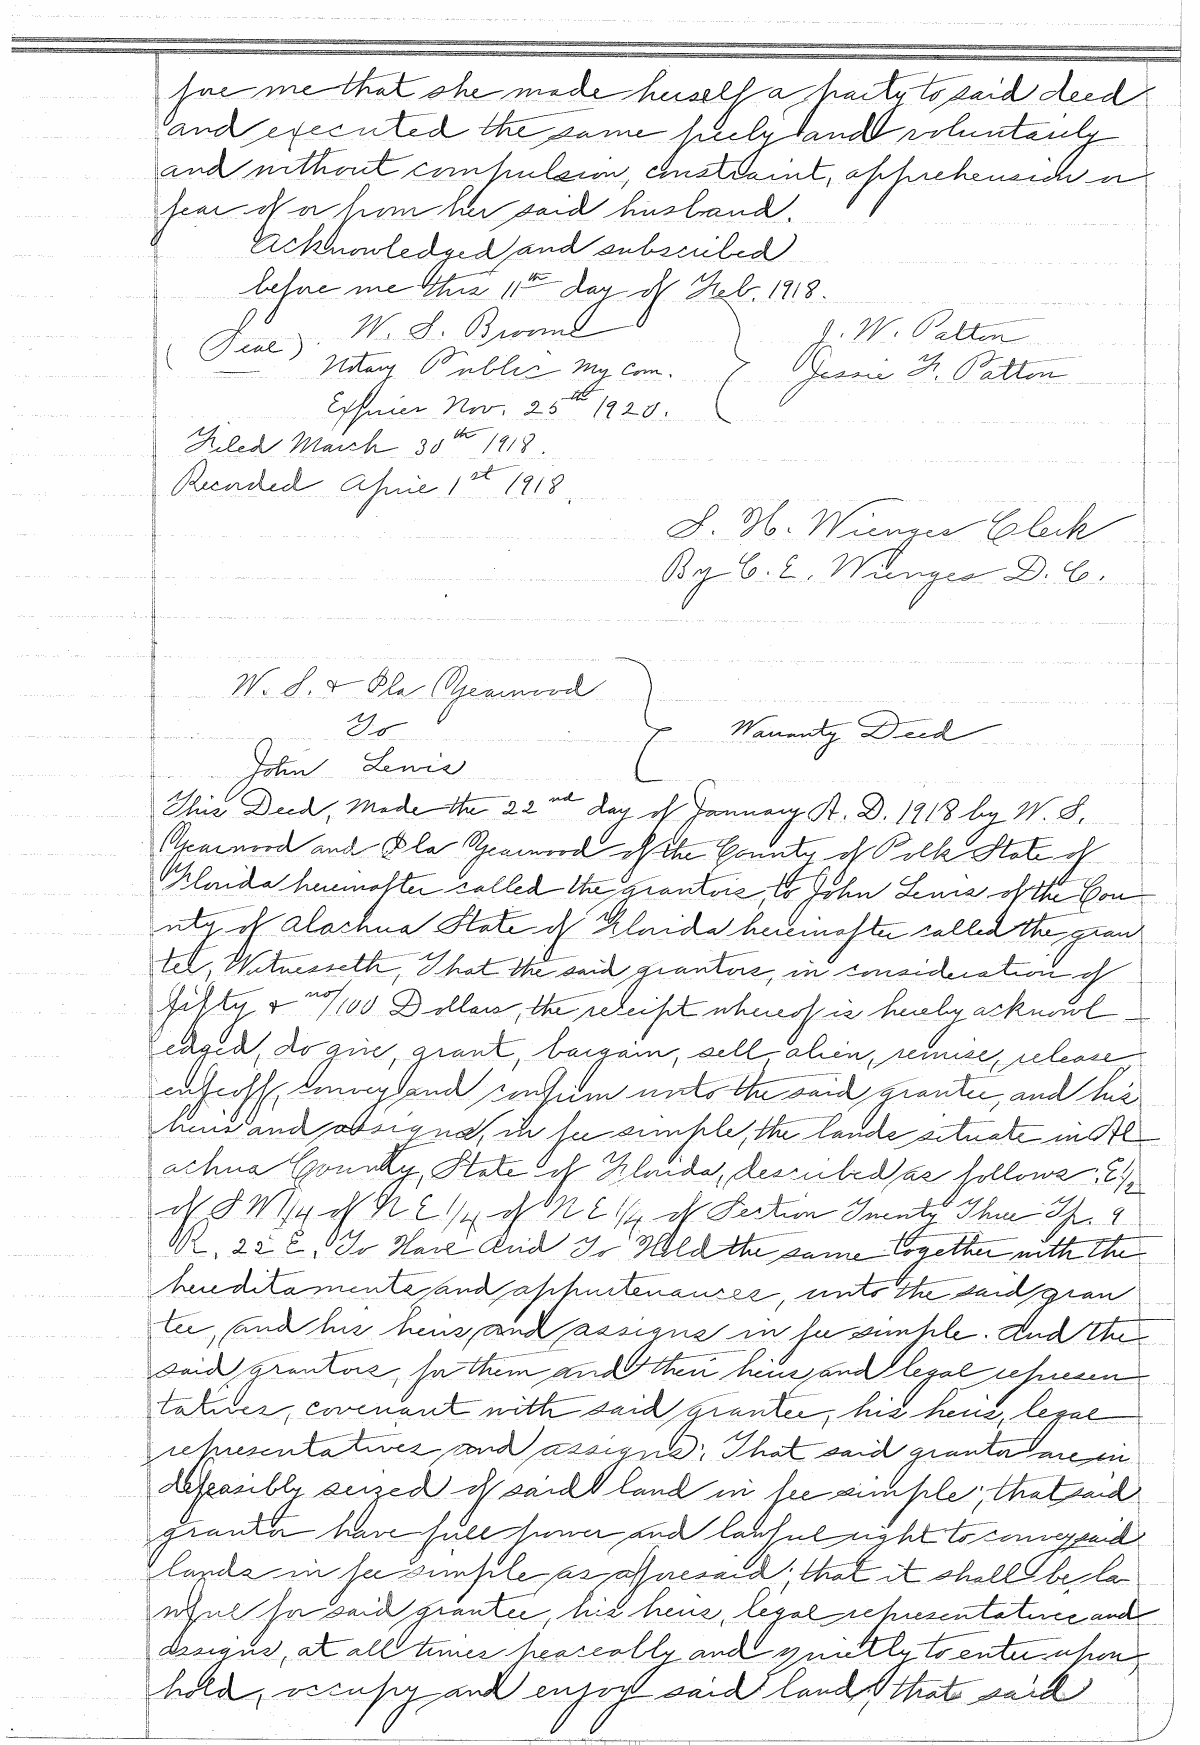 fore me that she made herself a party to said deed
and executed the same freely and voluntarily
and without compulsion, constraint, apprehension or
fear of or from her said husband.
Acknowledged and subscribed
before me this 11th day of Feb. 1918.
(Seal) W. S. Broome
J. W. Patton
Notary Public My Com.
Jessie F. Patton
Expires Nov. 25th 1920.
Filed March 30th 1918.
Recorded April 1st 1918.
S. H. Wienges Clerk
By C. E. Wienges D. C.
W. S. & Ola Yearwood
To
Warranty Deed
John Lewis
This Deed, Made the 22nd day of January A. D. 1918 by W. S.
Yearwood and Ola Yearwood of the County of Polk State of
Florida hereinafter called the grantors, to John Lewis of the Cou
nty of Alachua State of Florida hereinafter called the gran
tee, Witnesseth, That the said grantors, in consideration of
fifty & no/100 Dollars, the receipt whereof is hereby acknowl
edged, do give, grant, bargain, sell, alien, remise, release
enfeoff, convey and confirm unto the said grantee, and his
heirs and assigns, in fee simple, the lands situate in Al
achua County, State of Florida, described as follows: E1/2
of SW1/4 of NE1/4 of NE1/4 of Section Twenty Three Tp. 9
R. 22 E. To Have And To Hold the same together with the
hereditaments and appurtenances, unto the said gran
tee, and his heirs and assigns in fee simple. And the
said grantors, for them and their heirs and legal represen
tatives, covenant with said grantee, his heirs, legal
representatives and assigns: That said grantor are in
defeasibly seized of said land in fee simple; that said
grantor have full power and lawful right to convey said
lands in fee simple as aforesaid; that it shall be la
wful for said grantee, his heirs, legal representatives and
assigns, at all times peaceably and quietly to enter upon,
hold, occupy and enjoy said land, that said